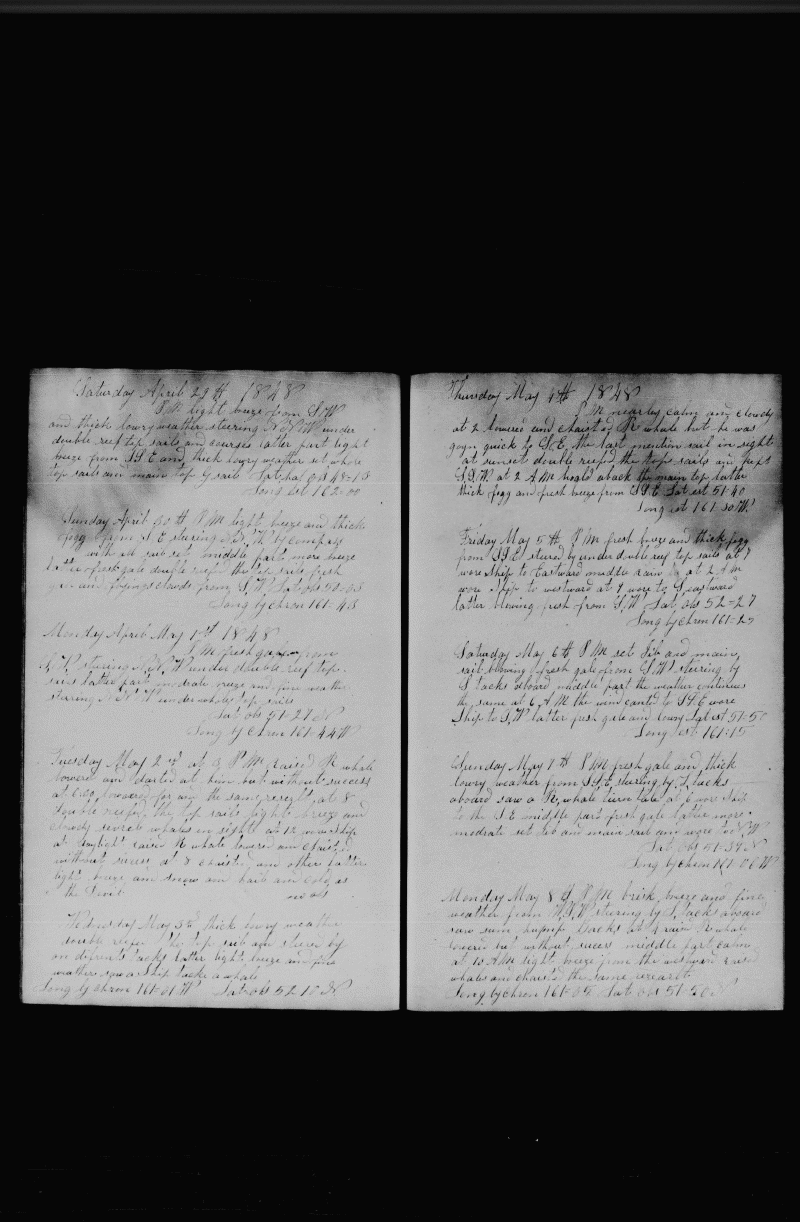 Saturday April 29th 1848
P M light breeze from S W
and thick lowry weather steering N N W under
double reef top sails and courses latter part light
breeze from S S E and thick lowry weather set whole
top sails and main top g sail Lat obs 48-13
Long est 162-00
Sunday April 30th P M light breeze and thick
fogg from S E steering N N W by compas
with all sail set middle part more breeze
latter fresh gale double reef the top sails fresh
gale and flying clouds from S W Lat obs 50-03
Long by chron 161-48
Monday April May 1st 1848
P M fresh gale from
S W steering N N W under double reef top
sails latter part modrate breeze and fine weather
stearing N N W under whole top sails
Lat obs 51-27 N
Long by Chron 161-44 W
Tuesday May 2nd at 4 P M raised R whale
lowered and darted at him but without success
at lowered for him the same result at 8
double reefed the top sails light breeze and
cloudy several whales in sight at 12 wore ship
at daylight raised R whale lowered and chaised
without success at 8 chaised another latter
light breeze and snow and hail and cold as
the Devil no obs
Wednesday May 3d thick lowry weather
double reefed the top sails steared by
on diferent tacks latter light breeze and fine
weather saw a Ship take a whale
Long by chron 161-01 W Lat obs 52 10 N
Thursday May 4th 1848
P M nearley calm and cloudy
at 2 lowered and chaised R whale but he was
goyn quick to S E the last mention sail in sight
at sunset double reefed the top sails wind
S S W at 2 A M hould aback the main top latter
thick fogg and fresh breeze from S S E Lat est 51-40
Long est 161-30 W
Friday May 5th P M fresh breeze and thick fogg
from S S E steered by under double reef top sails at 7
wore ship to Eastward middle rain at 2 A M
wore Ship to westward at 7 wore to Eastward
latter blowing fresh from S W Lat obs 52-27
Long by chron 161-29
Saturday May 6th P M set Jib and main
sail blowing fresh gale from S W steering by
S tacks aboard middle part the weather continues
the same at 6 A M the wind canted to S S E wore
Ship to S W latter fresh gale and lowry Lat est 51-50
Long est 161-15
Sunday May 7th P M fresh gale and thick
lowry weather from S S E steering by L tacks
aboard saw a R whale turn fluke at 6 wore Ship
to the S E middle part fresh gale latter more
modrate set Jib and main sail and wore to N W
Lat obs 51-37 N
Long by chron 161-06 W
Monday May 8th P M brisk breeze and fine
weather from W S W steering by S tacks aboard
saw sum humpBacks at 4 raised R whale
lowered but without sucess middle part calm
at 10 A M light breeze from the westward raised
whales and chaised the same resault
Long by chron 161-05 Lat obs 51-50 N